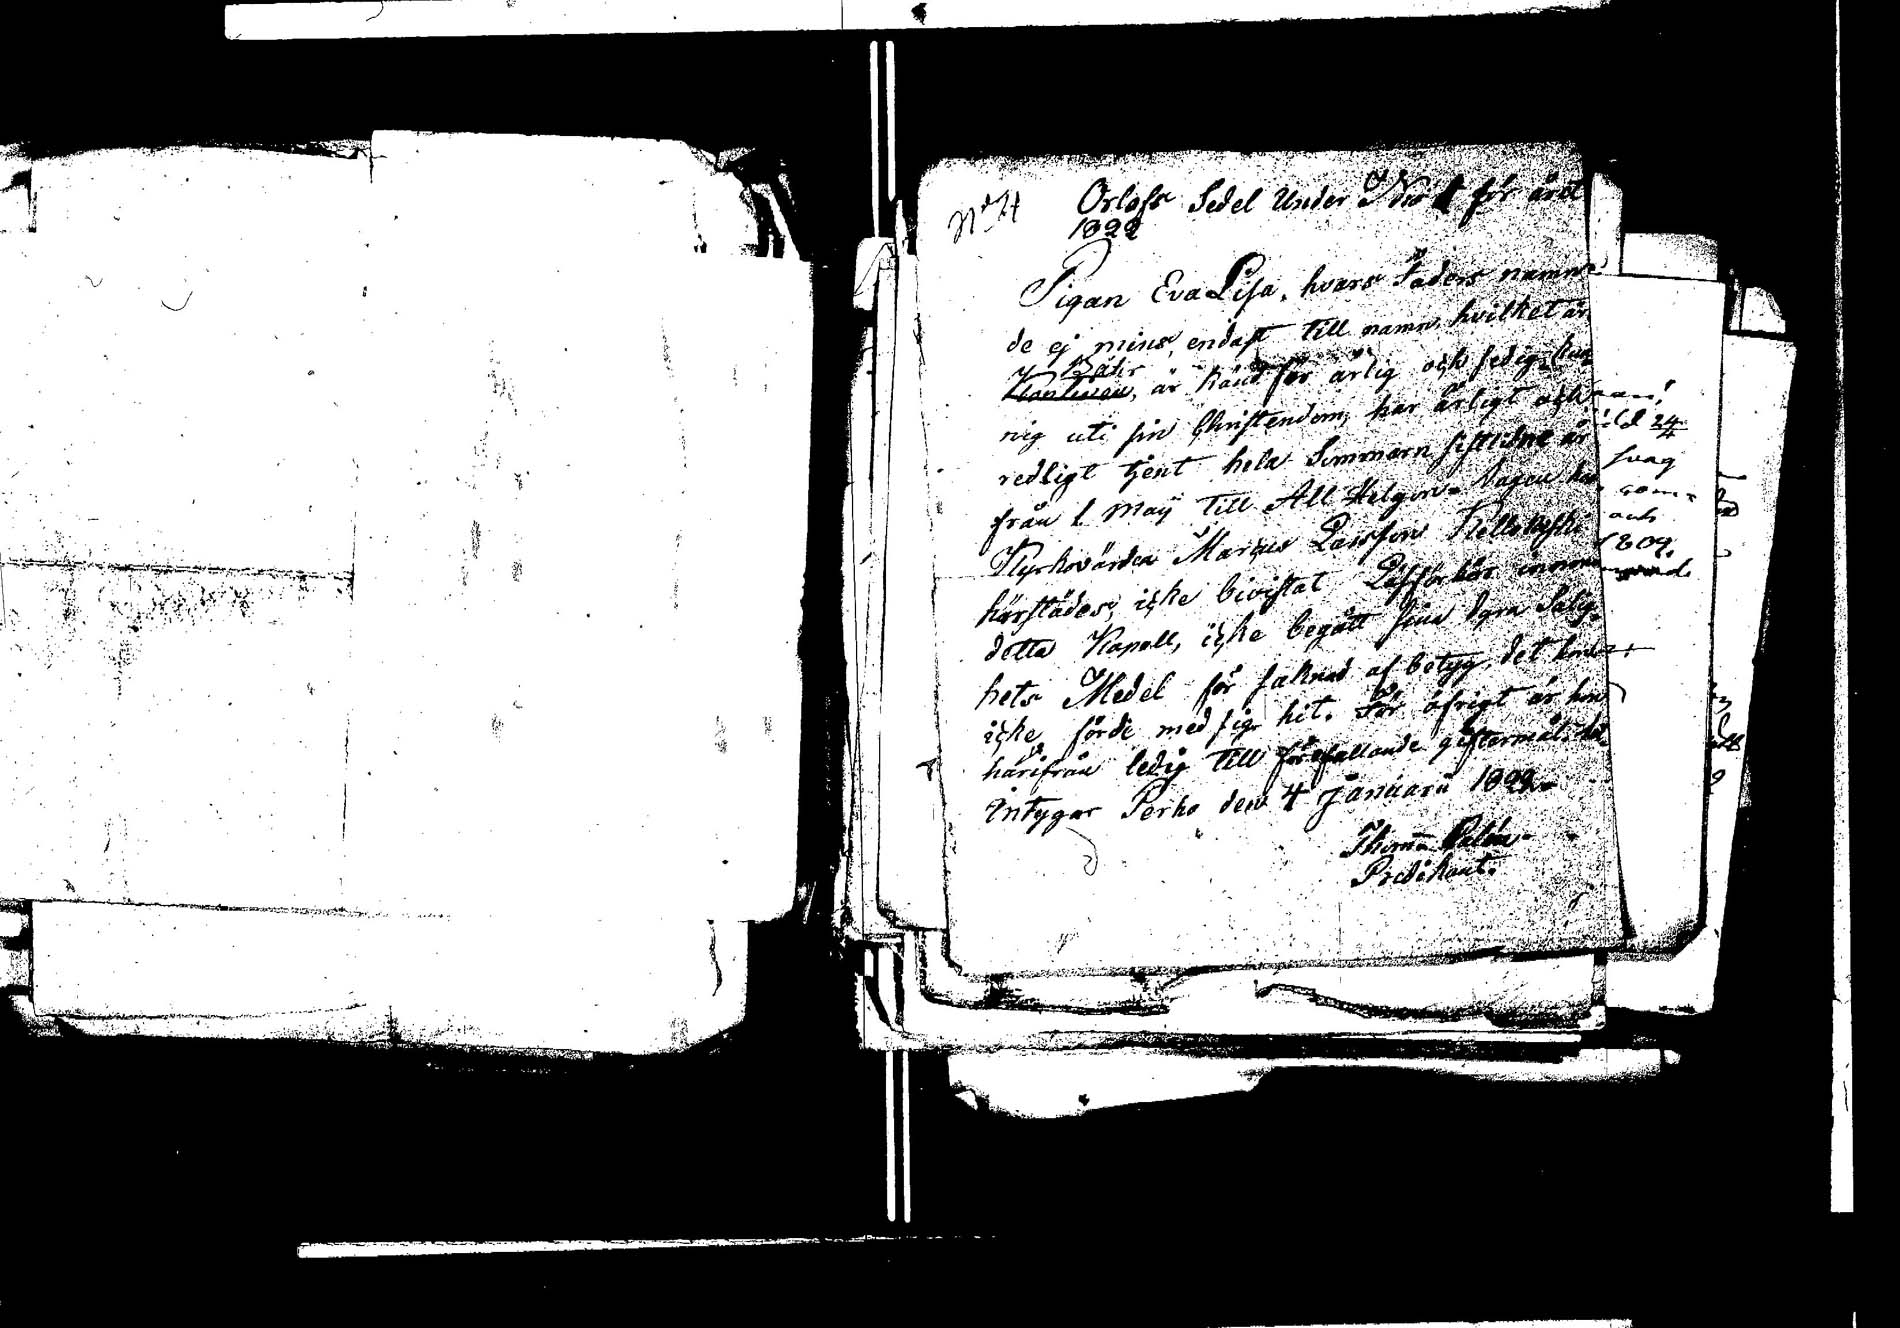 N:o 4
Orlofs Sedel Under N:ro 1 för året
1822
Pigan Eva Lisa, hvars Faders namn
de ej mins, endast till namn, hvilket är
Bähr
är känd för ärlig och sedig, kun
nig uti sin Christendom, har ärligt och
redligt tjent hela Sommarn sistledne år
från 1 Maÿ till All Helgon-Dagen hos
Kyrkovärden Marcus Larsson
härstädes, icke bivistat Läsförhör innom
detta Kapell, icke begått sina dyra Salig-
hets Medel för saknad af betyg, det hon
icke förde med sig hit. För öfrigt är hon
härifrån ledig till förefallande giftermål
intygar Perho den 4 Januarii 1822
Predikant.
24
4
svag
som
och
1809.